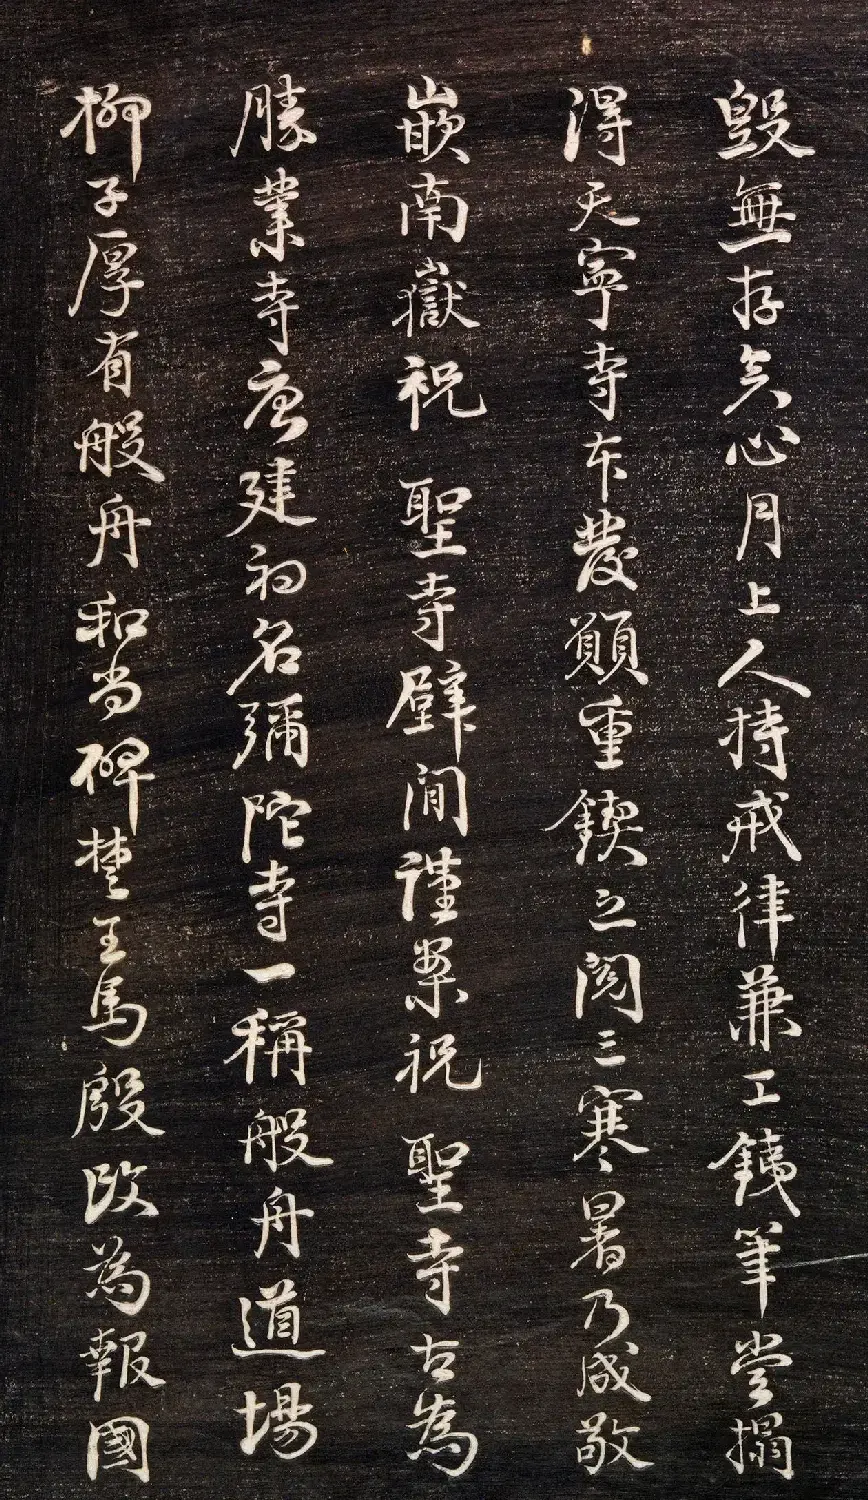 毀無存矣心月上人持戒律兼工銕筆嘗搨
得天寧寺本發願重鍥之閱三寒暑乃成敬
嵌南嶽祝 聖寺壁間謹案祝 聖寺古為
勝業寺唐建初名彌陀寺一稱般舟道場
柳子厚有般舟和尚碑楚王馬殷改為報國